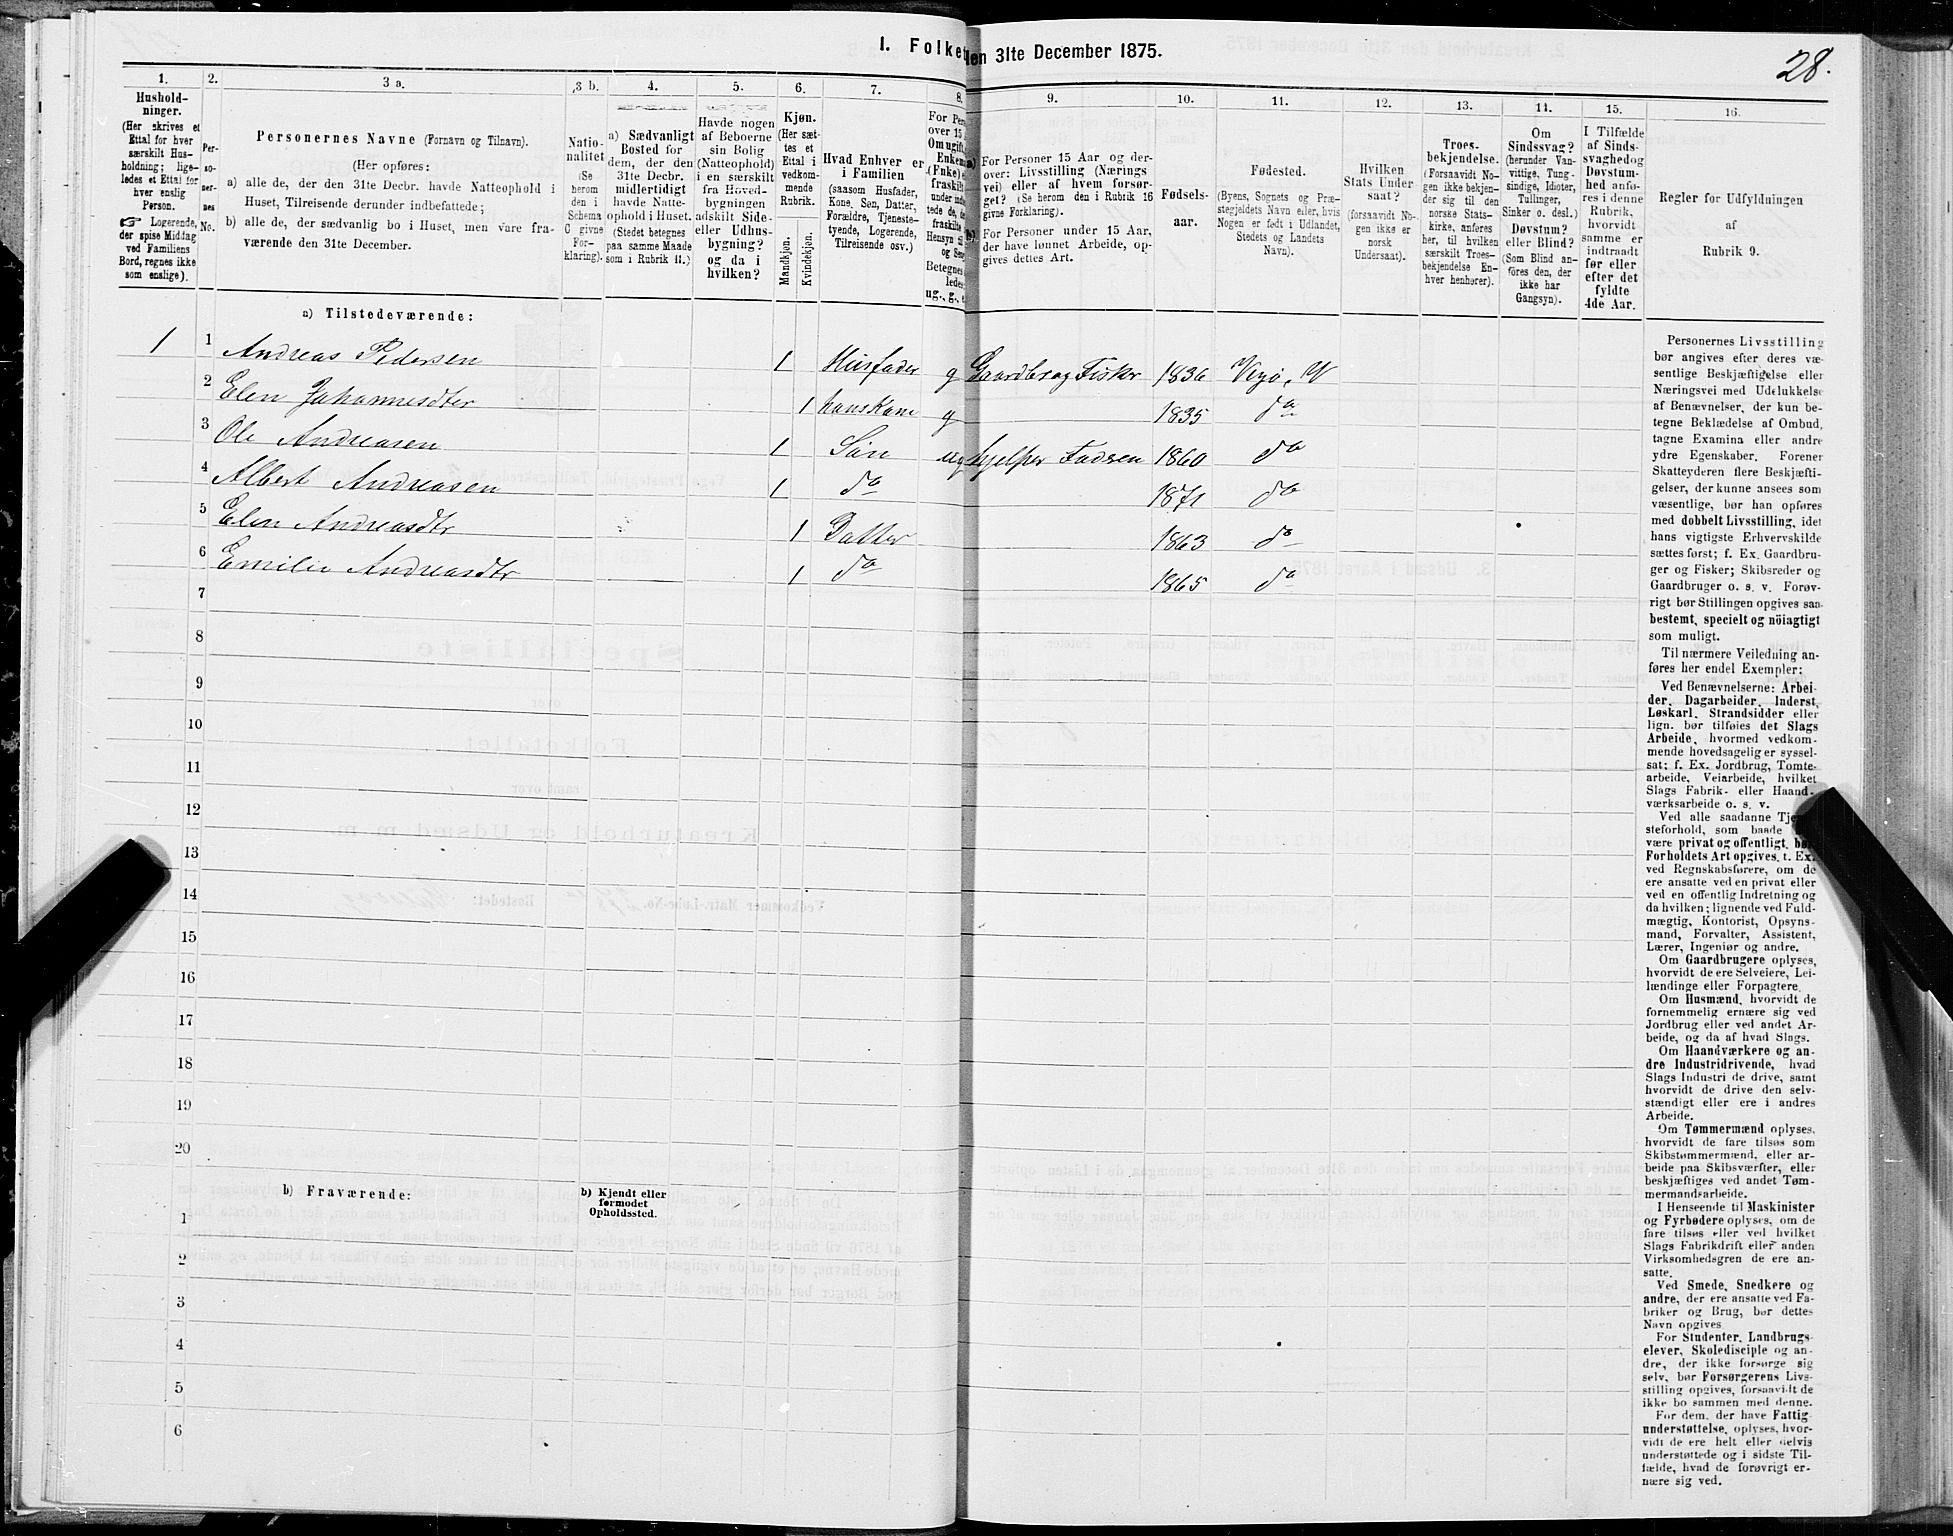 I. Folke
den 31te December 1875.
28.
1.
2.
3 a.
3 b.
4.
5.
6.
7.
8.
9.
10.
11.
12.
13.
14.
15.
16.
Hushold-
ninger.
(Her skrives et
Ettal for hver
særskilt Hus-
holdning; lige-
ledes et Ettal for
hver enslig
Person.
☞ Logerende,
der spise Middag
ved Familiens
Bord, regnes ikke
som enslige).
Per-
so-
ner-
nes
No.
Personernes Navne (Fornavn og Tilnavn).
(Her opføres:
a) alle de, der den 31te Decbr. havde Natteophold i
Huset, Tilreisende derunder indbefattede;
b) alle de, der sædvanlig bo i Huset, men vare fra-
værende den 31te December.
Natio-
nalitet
(Se
herom
den i
Schema
C givne
For-
klaring).
a) Sædvanligt
Bosted for
dem, der den
31te Decbr.
midlertidigt
havde Natte-
ophold i Huset.
(Stedet betegnes
paa samme Maade
som i Rubrik 11.)
Havde nogen
af Beboerne
sin Bolig
(Natteophold)
i en særskilt
fra Hoved-
bygningen
adskilt Side-
eller Udhus-
bygning?
og da i
hvilken?
Kjøn.
(Her sæt-
tes et
Ettal i
vedkom-
mende
Rubrik.
Mandkjøn.
Kvindekjøn.
Hvad Enhver er
i Familien
(saasom Husfader,
Kone, Søn, Datter,
Forældre, Tjeneste-
tyende, Logerende,
Tilreisende osv.)
For Per
over 15
Om ugift,
Enkem
(Enke) e
fraskilt
under indb
tede de, d
fraskilte
Hensyn til
og Sen
Betegnes
ledes
ug., g., e
a)
For Personer 15 Aar og der-
over: Livsstilling (Nærings
vei) eller af hvem forsør-
get? (Se herom den i Rubrik 16
givne Forklaring).
b)
For Personer under 15 Aar,
der have lønnet Arbeide, op-
gives dettes Art.
Fødsels-
aar.
Fødested.
(Byens, Sognets og Præ-
stegjeldets Navn eller, hvis
Nogen er født i Udlandet,
Stedets og Landets
Navn).
Hvilken
Stats Under
saat?
(forsaavidt No-
gen ikke er
norsk
Undersaat).
Troes-
bekjendelse.
(Forsaavidt No-
gen ikke bekjen-
der sig til den
norske Stats-
kirke, anføres
her, til hvilken
særskilt Troes-
bekjendelse En-
hver henhører).
Om
Sindssvag?
(herunder Van-
vittige, Tung-
sindige, Idioter,
Tullinger,
Sinker o. desl.)
Døvstum?
eller Blind?
(Som Blind an-
föres den, der
ikke har
Gangsyn).
I Tilfælde
af Sinds-
svaghedog
Døvstum-
hed anfø-
res i denne
Rubrik,
hvorvidt
samme er
indtraadt
før eller
efter det
fyldte
4de Aar.
Regler for Udfyldningen
af
Rubrik 9.
a) Tilstedeværende:
1 1 Andreas Pedersen 1 Husfader g Gaardbr og Fisker 1836 Vegø, N
2 Elen Johannesdter 1 hans Kone g 1835 do
3 Ole Andreasen 1 Søn ug hjelper Fadren 1860 do
4 Albert Andreasen 1 do 1871 do
5 Elen Andreasdtr 1 Datter 1863 do
6 Emilie Andreasdtr 1 do 1865 do
7
8
9
10
11
12
13
14
15
16
17
18
19
20
b) Fraværende:
b) Kjendt eller
formodet
Opholdssted.
1
2
3
4
5
6
Personernes Livsstilling
bør angives efter deres væ-
sentlige Beskjæftigelse eller
Næringsvei med Udelukkelse
af Benævnelser, der kun be-
tegne Beklædelse af Ombud,
tagne Examina eller andre
ydre Egenskaber. Forener
Skatteyderen flere Beskjæfti-
gelser, der kunne ansees som
væsentlige, bør han opføres
med dobbelt Livsstilling, idet
hans vigtigste Erhvervskilde
sættes først; f. Ex. Gaardbru-
ger og Fisker; Skibsreder og
Gaardbruger o. s. v. Forøv-
rigt bør Stillingen opgives saa
bestemt, specielt og nöiagtigt
som muligt.
Til nærmere Veiledning an-
føres her endel Exempler:
Ved Benævnelserne: Arbei-
der, Dagarbeider, Inderst,
Løskarl, Strandsidder eller
lign. bør tilføies det Slags
Arbeide, hvormed vedkom-
mende hovedsagelig er syssel-
sat; f. Ex. Jordbrug, Tomte-
arbeide, Veiarbeide, hvilket
Slags Fabrik- eller Haand-
værksarbeide o. s. v.
Ved alle saadanne Tje
steforhold, som baade
være privat og offentligt, bø
Forholdets Art opgives, t. Ex.
ved Regnskabsførere, om de
ere ansatte ved en privat eller
ved en offentlig Indretning og
da hvilken; lignende ved Fuld-
mægtig, Kontorist, Opsyns-
mand, Forvalter, Assistent,
Lærer, Ingeniør og andre.
Om Gaardbrugere oplyses,
hvorvidt de ere Selveiere, Lei-
lændinge eller Forpagtere.
Om Husmænd, hvorvidt de
fornemmelig ernære sig ved
Jordbrug eller ved andet Ar-
beide, og da af hvad Slags.
Om Haandværkere og an-
dre Industridrivende, hvad
Slags Industri de drive, samt
hvorvidt de drive den selv-
stændigt eller ere i andres
Arbeide.
Om Tømmermænd oplyses,
hvorvidt de fare tilsøs som
Skibstømmermænd, eller ar-
beide paa Skibsværfter, eller
beskjæftiges ved andet Tøm-
mermandsarbeide.
I Henseende til Maskinister
og Fyrbødere oplyses, om de
fare tilsøs eller ved hvilket
Slags Fabrikdrift eller anden
Virksomhedsgren de ere an-
satte.
Ved Smede, Snedkere og
andre, der ere ansatte ved Fa-
briker og Brug, bør dettes
Navn opgives.
For Studenter, Landbrugs-
elever, Skoledisciple og an-
dre, der ikke forsørge sig
selv, bør Forsørgerens Livs-
stilling opgives, forsaavidt de
ikke bo sammen med denne.
For dem, der have Fattig-
understøttelse, oplyses, hvor-
vidt de ere helt eller delvis
understøttede og i sidste Til-
fælde, hvad de forøvrigt er-
nære sig ved.